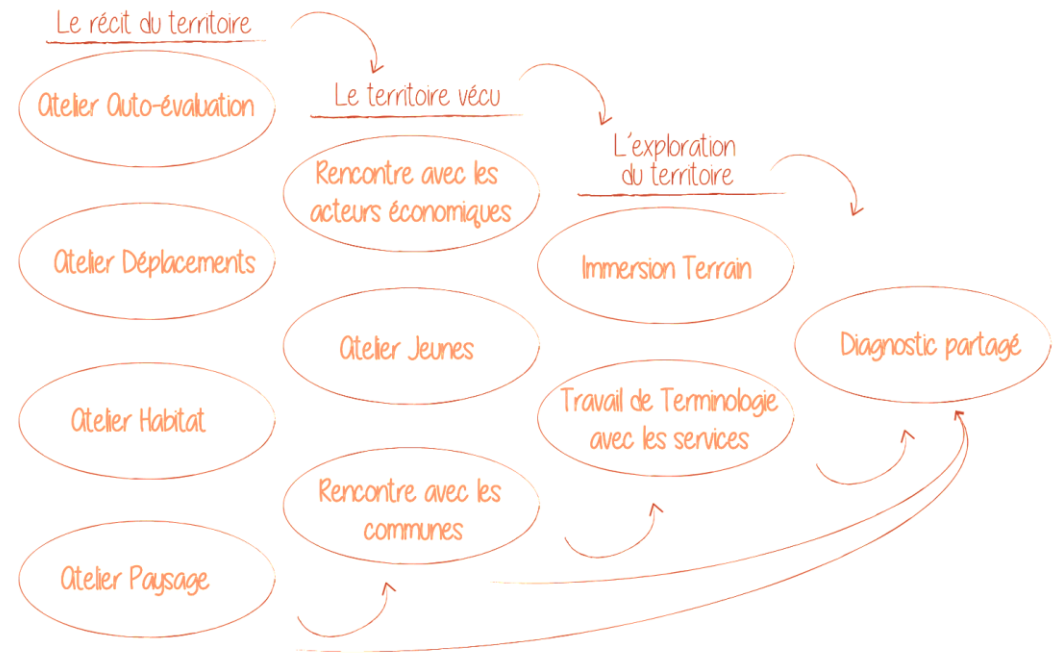 Le récit du territoire
Atelier Auto-évaluation
Atelier Déplacements
Atelier Habitat
Atelier Paysage
Le territoire vécu
Rencontre avec les
acteurs économiques
Atelier Jeunes
Rencontre avec les
communes
L'exploration
du territoire
Immersion Terrain
Travail de Terminologie
avec les services
Diagnostic partagé